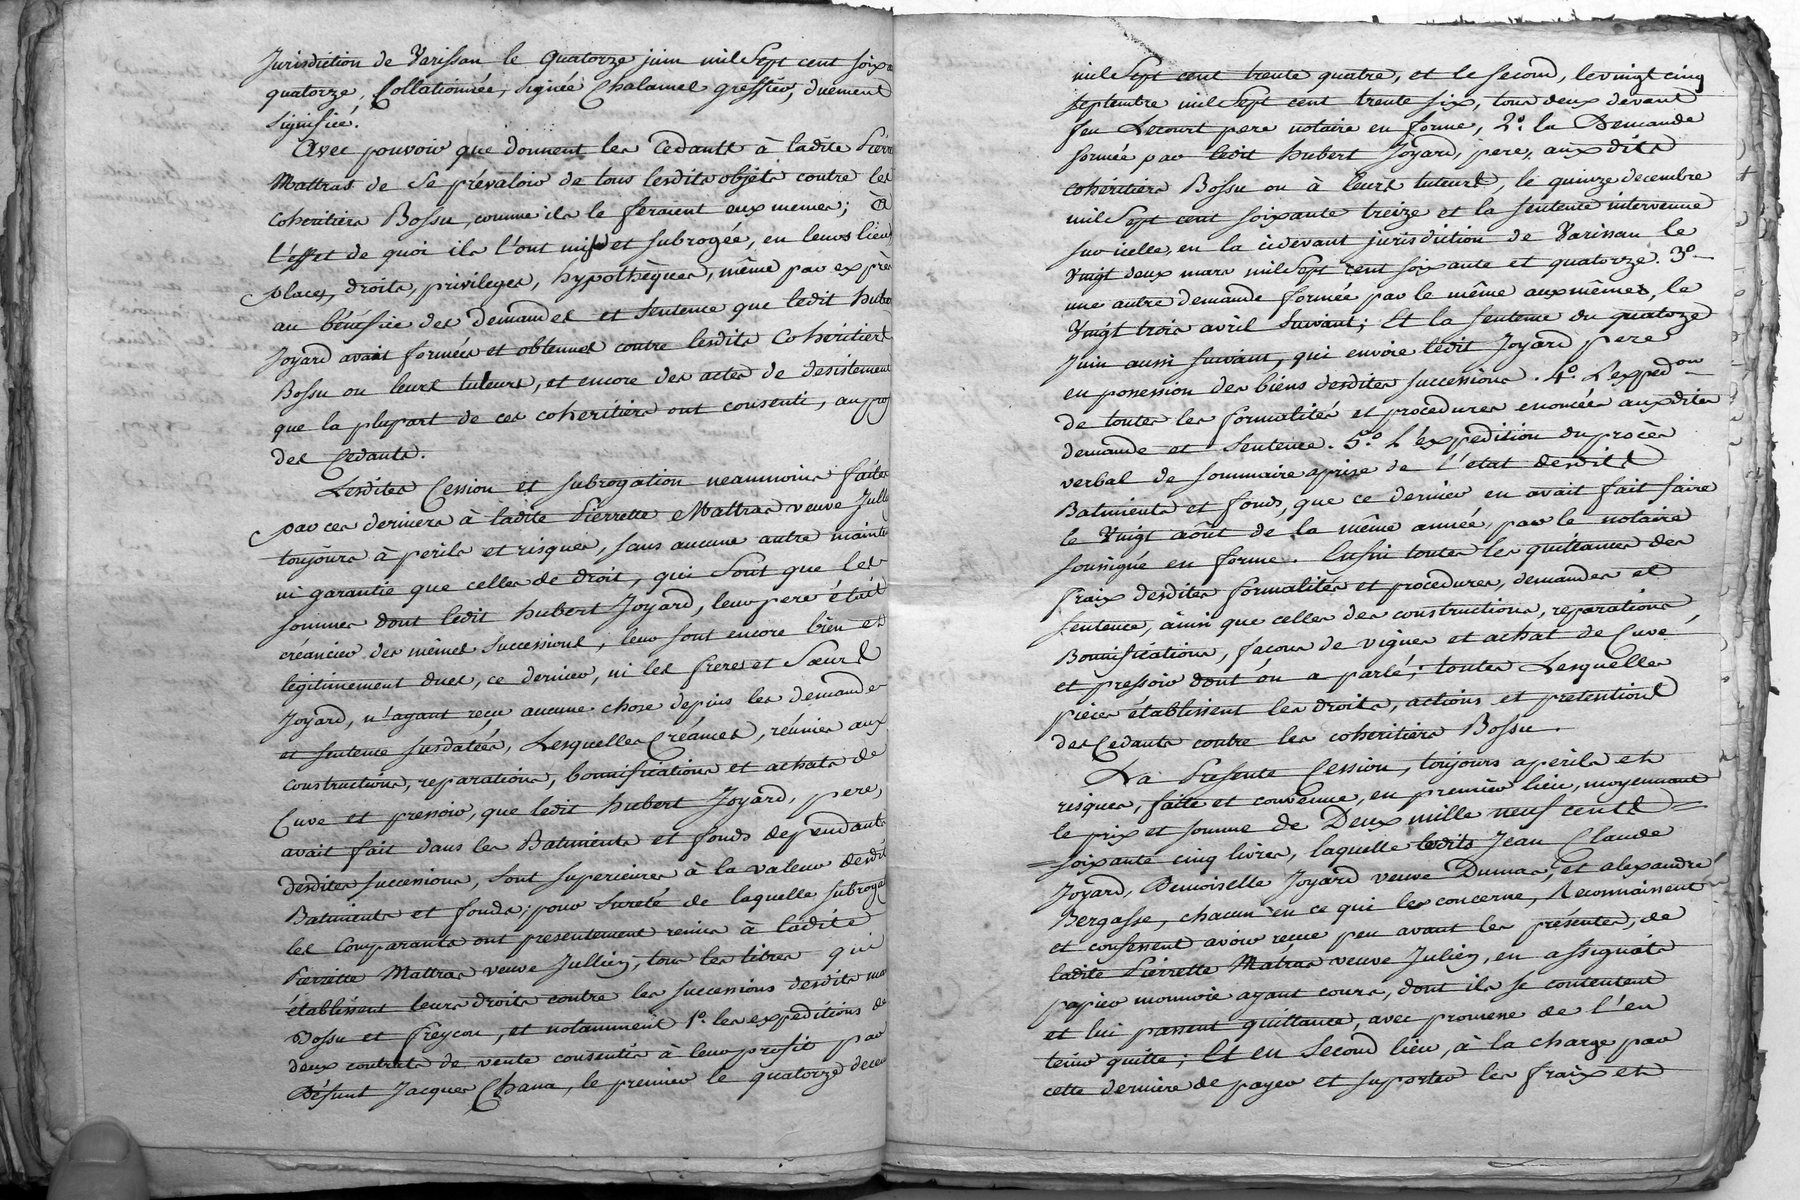 Jurisdiction de Varissan le quatorze juin mil Sept cent soix
quatorze, Collationnée, signée Chalamel greffier, duement
signifiée.
Avec pouvoir que donnent les Cedants à ladite Pierr
Mattras de se prévaloir de tous lesdits objets contre les
coheritiers Bossu, comme ils le feraient eux memes; à
l'effet de quoi ils l'ont mise et subrogée, en leurs lieu,
place, droits, privileges, hypothèques, même par exprès
au bénéfice des demandes et sentence que ledit hube
Joyard avait formées et obtenues contre lesdits Coheritiers
Bossu ou leurs tuteurs, et encore des actes de desistement
que la plupart de ces coheritiers ont consenti, au pro
des Cedants.
Lesdites Cession et subrogation neanmoins faites
par ces derniers à ladite Pierrette Mattras veuve Jull
toujours à perils et risques, sans aucune autre mainte
ni garantie que celles de droit, qui sont que les
sommes dont ledit hubert Joyard, leur pere était
créancier des mêmes Successions, leur sont encore bien et
légitimement dues, ce dernier, ni les frere et Sœurs
Joyard, n'ayant reçu aucune chose depuis les demandes
et sentence susdatées, Lesquelles Créances, réunies aux
constructions, reparations, bonnifications et achats de
Cuve et pressoir, que ledit hubert Joyard, pere,
avait fait dans les Batiments et fonds dependants
desdites successions, sont superieures à la valeur desdit
Batiments et fonds; pour Sureté de laquelle subrogat
les Comparants ont presentement remis à ladite
Pierrette Mattras veuve Jullien, tous les titres qui
établissent leurs droits contre les successions desdits
Bossu et Freycon, et notamment 1°. les expeditions de
deux contrats de vente consentis à leur profit par
Défunt Jacques Chana, le premier le quatorze dece
mil Sept cent trente quatre, et le second, le vingt cinq
septembre mil Sept cent trente six, tous deux devant
feu Lecourt pere notaire en forme, 2°. la Demande
formée par ledit hubert Joyard, pere, aux dits
cohéritiers Bossu ou à leurs tuteurs, le quinze decembre
mil Sept cent soixante treize et la sentence intervenue
sur icelle, en la cidevant jurisdiction de Varissan le
Vingt deux mars mil Sept cent soixante et quatorze. 3°.
une autre demande formée par le même aux mêmes, le
Vingt trois avril Suivant; Et la sentence du quatorze
Juin aussi suivant, qui envoie ledit Joyard pere
en possession des biens desdites successions. 4°. L'exped.on
de toutes les formalités et procedures enoncées auxdites
demande et Sentence. 5.° L'expedition du procès
verbal de sommaire aprise de l'etat desdits
Batiments et fonds, que ce dernier en avait fait faire
le Vingt août de la même année, par le notaire
soussigné en forme. Enfin toutes les quittances des
fraix desdites formalités et procedures, demandes et
sentence, ainsi que celles des constructions, reparations,
Bonnifications, façons de vignes et achat de Cuve
et pressoir dont on a parlé; toutes Lesquelles
pieces établissent les droits, actions et pretentions
des Cedants contre les coheritiers Bossu.
La Presente Cession, toujours à perils et
risques, faite et convenue, en premier lieu, moyennant
le prix et somme de Deux mille neuf cents =
= soixante cinq livres, laquelle lesdits Jean Claude
Joyard, Demoiselle Joyard veuve Dumas, et alexandre
Bergasse, chacun en ce qui les concerne, Reconnaissent
et confessent avoir reçue peu avant les présentes, de
ladite Pierrette Matras veuve Julien, en assignats
papier monnoie ayant cours, dont ils se contentent
et lui passent quittance, avec promesse de l'en
tenir quitte; Et en Second lieu, à la charge par
cette derniere de payer et suporter les fraix et